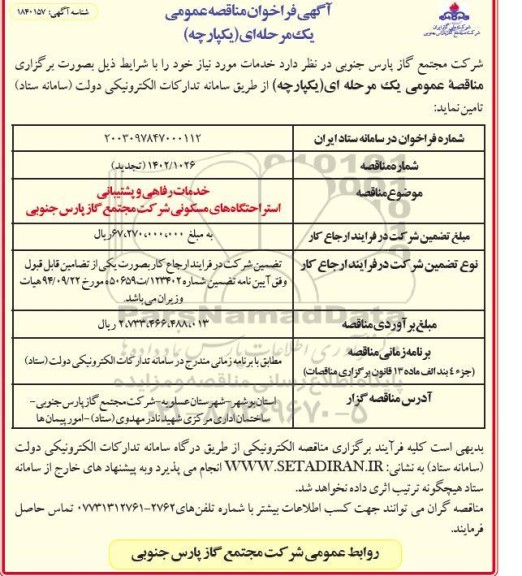 شناسه آگهی: ۱۸۴۰۱۵۷
آگهی فراخوان مناقصه عمومی
یک مرحله‌ای (یکپارچه)
شرکت مجتمع گاز پارس جنوبی در نظر دارد خدمات مورد نیاز خود را با شرایط ذیل بصورت برگزاری
مناقصهٔ عمومی یک مرحله ای(یکپارچه) از طریق سامانه تدارکات الکترونیکی دولت (سامانه ستاد)
تامین نماید:
شماره فراخوان در سامانه ستاد ایران
۲۰۰۳۰۹۷۸۴۷۰۰۰۱۱۲
شماره مناقصه
۱۴۰۲/۱۰۲۶ (تجدید)
موضوع مناقصه
خدمات رفاهی و پشتیبانی
استراحتگاه‌های مسکونی شرکت مجتمع گاز پارس جنوبی
مبلغ تضمین شرکت در فرایند ارجاع کار
به مبلغ ۶۷،۲۷۰،۰۰۰،۰۰۰ریال
نوع تضمین شرکت در فرایند ارجاع کار
تضمین شرکت در فرایند ارجاع کار بصورت یکی از تضامین قابل قبول
وفق آیین نامه تضمین شماره ۱۲۳۴۰۲/ت۵۰۶۵۹ه مورخ ۹۴/۰۹/۲۲ هیات
وزیران می باشد.
مبلغ برآوردی مناقصه
۲،۷۳۳،۴۶۶،۴۸۸،۰۱۳ ریال
برنامه زمانی مناقصه
(جزء ٤ بند الف ماده ۱۳ قانون برگزاری مناقصات)
مطابق با برنامه زمانی مندرج در سامانه تدارکات الکترونیکی دولت (ستاد)
آدرس مناقصه گزار
استان بوشهر-شهرستان عسلویه-شرکت مجتمع گاز پارس جنوبی-
ساختمان اداری مرکزی شهید نادر مهدوی (ستاد)-امور پیمان ها
ParsNamadData
پایگاه اطلاع رسانی مناقصه و مزایده
۰۲۱-۸۸۳۴۹۶۷۰-۵
بدیهی است کلیه فرآیند برگزاری مناقصه الکترونیکی از طریق درگاه سامانه تدارکات الکترونیکی دولت
(سامانه ستاد) به نشانی: WWW.SETADIRAN.IR انجام می پذیرد وبه پیشنهاد های خارج از سامانه
ستاد هیچگونه ترتیب اثری داده نخواهد شد.
مناقصه گران می توانند جهت کسب اطلاعات بیشتر با شماره تلفن‌های ۲۷۶۲-۰۷۷۳۱۳۱۲۷۶۱ تماس حاصل
فرمایند.
روابط عمومی شرکت مجتمع گاز پارس جنوبی